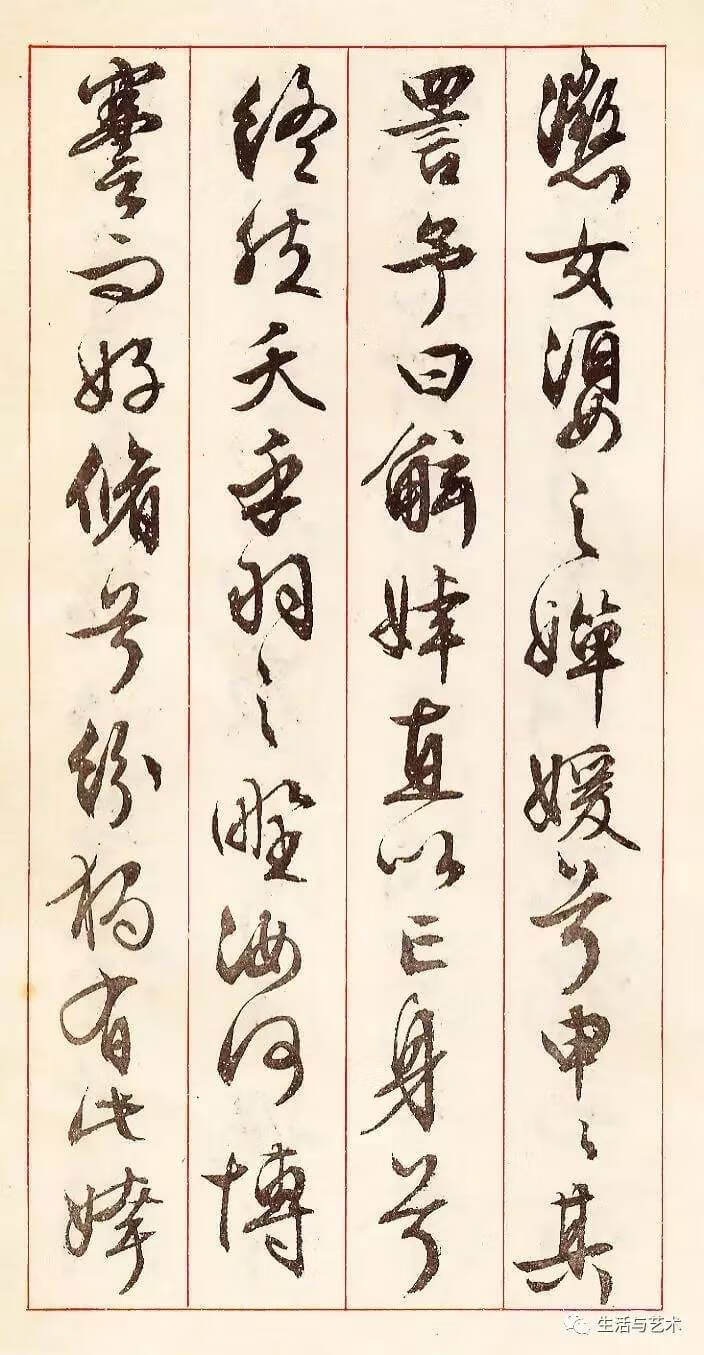 懲女嬃之嬋媛兮申々其
詈予曰鮌婞直以亡身兮
終然夭乎羽之野汝何博
謇而好脩兮紛獨有此姱
生活与艺术